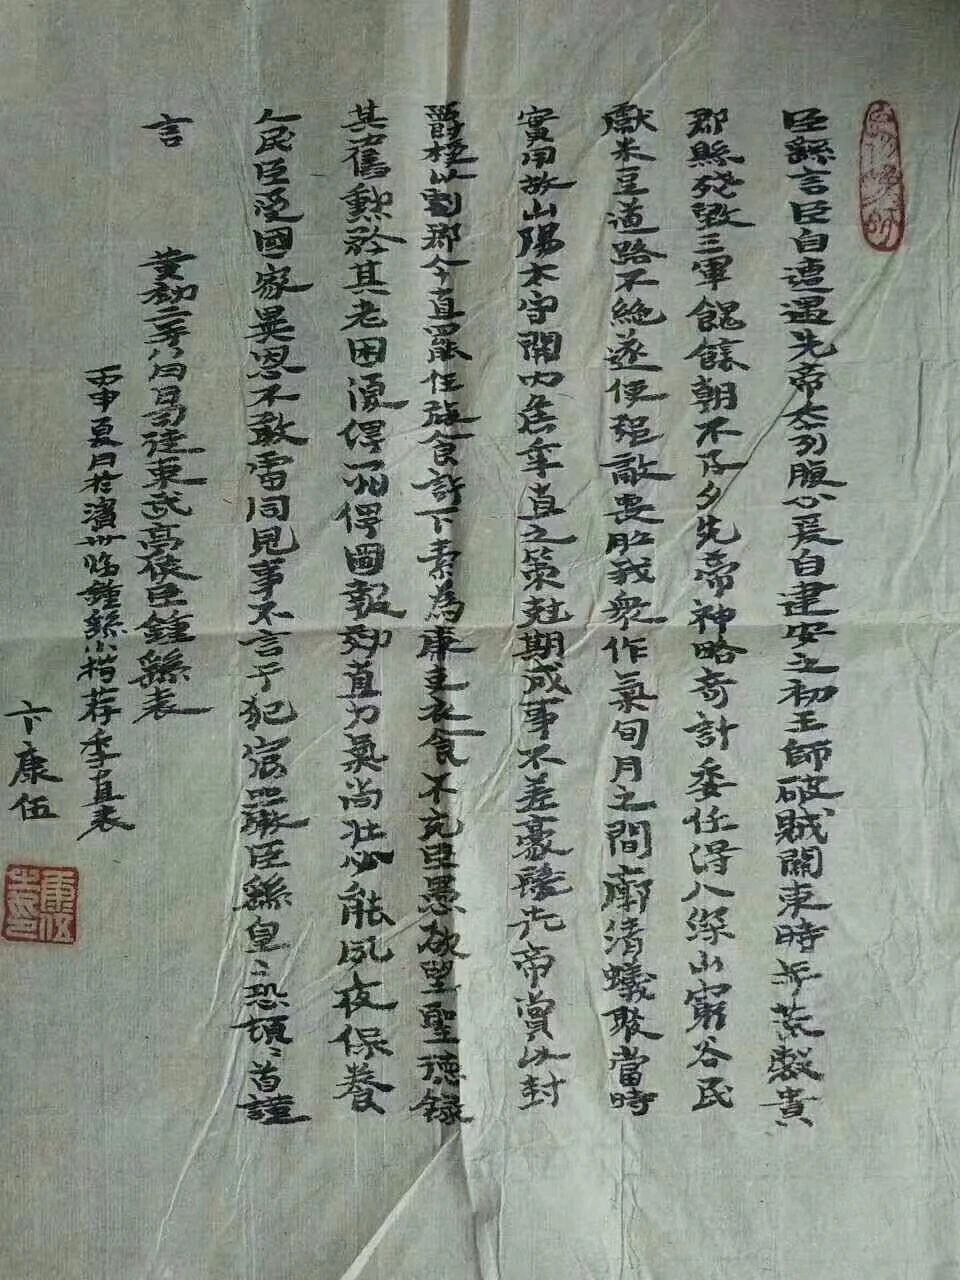 臣繇言臣自遭遇先帝忝列腹心爰自建安之初王師破賊關東時年荒穀貴
郡縣殘毀三軍餽饟朝不及夕先帝神略奇計委任得人深山窮谷民
獻米豆道路不絕遂使強敵喪膽我衆作氣旬月之間廓清蟻聚當時
實用故山陽太守關內侯季直之策尅期成事不差豪髮先帝賞以封
爵授以劇郡今直罷任旅食許下素為廉吏衣食不充臣愚欲望聖德錄
其舊勳矜其老困復俾一州俾圖報效直力氣尚壯必能夙夜保養
人民臣受國家異恩不敢雷同見事不言干犯宸嚴臣繇皇〻恐頓〻首謹
言
黃初二年八月日司徒東武亭侯臣鍾繇表
丙申夏月於濱州臨鍾繇小楷荐季直表
卞康伍